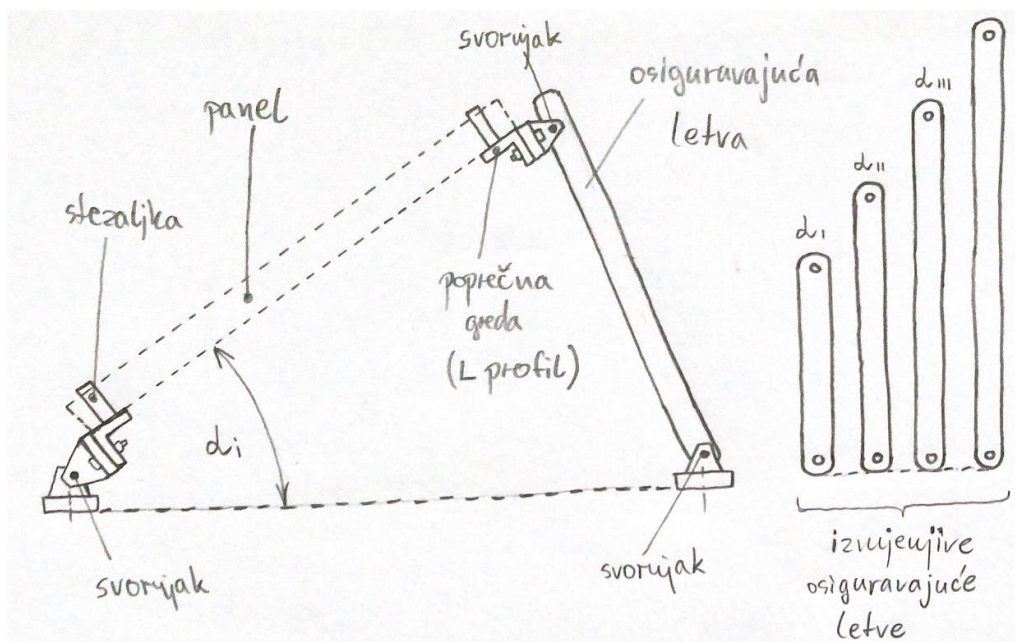 svornjak
osiguravajuća
letva
panel
stezaljka
poprečna
greda
(L profil)
αi
svornjak
svornjak
αI
αII
αIII
izmjenjive
osiguravajuće
letve